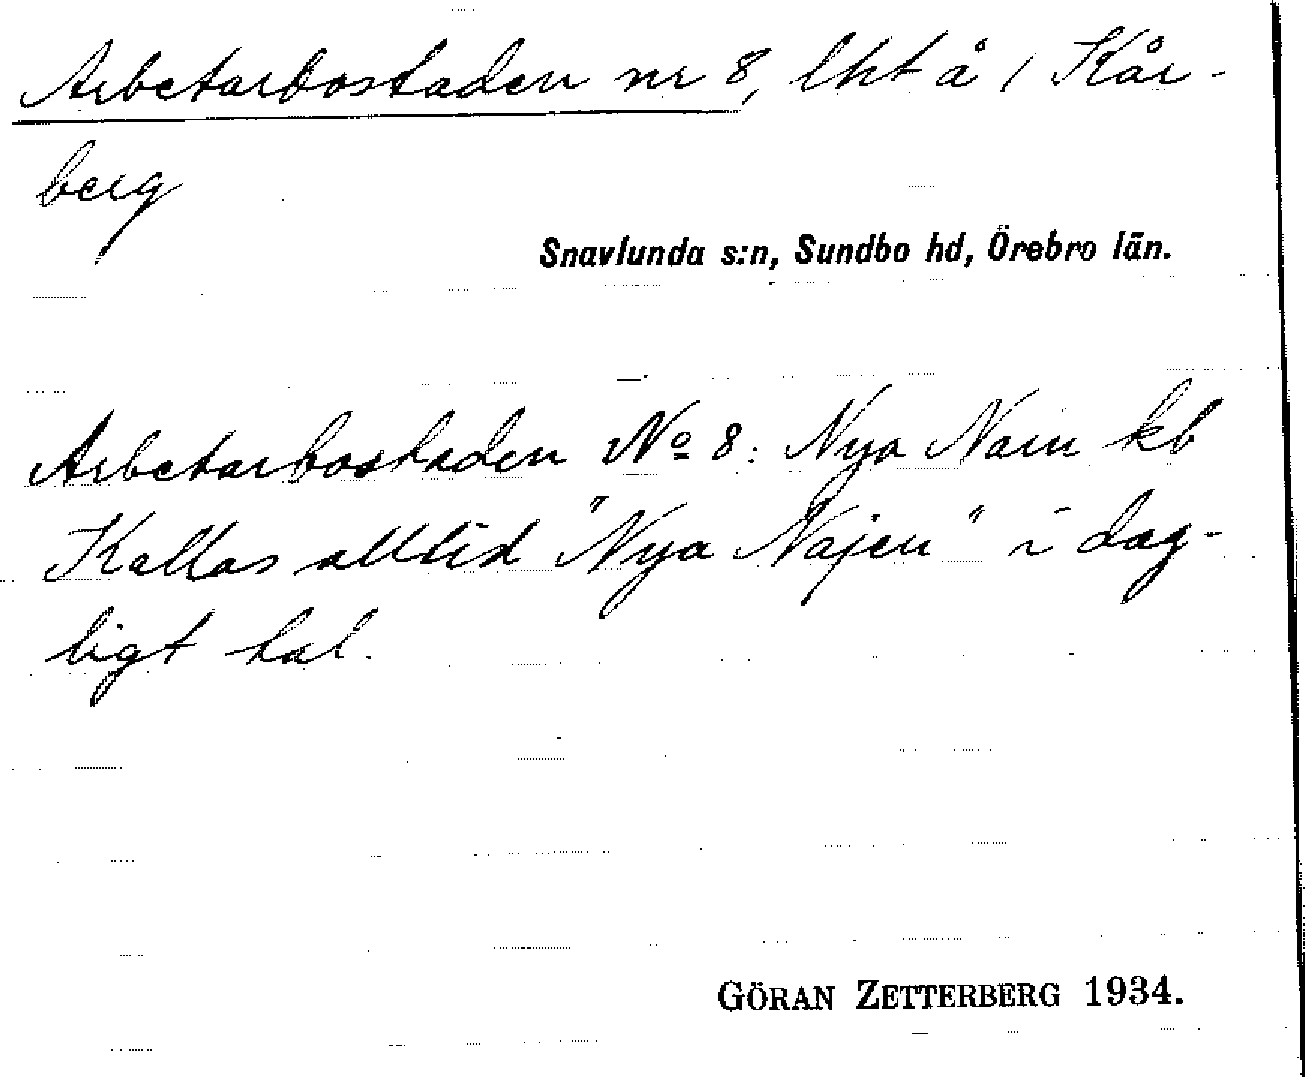 Arbetarbostaden nr 8, lht å 1 Kår-
berg
Snavlunda s:n, Sundbo hd, Örebro län.
Arbetarbostaden No 8: Nya Nain kb
Kallas alltid "Nya Najen" i dag-
ligt tal.
GÖRAN ZETTERBERG 1934.